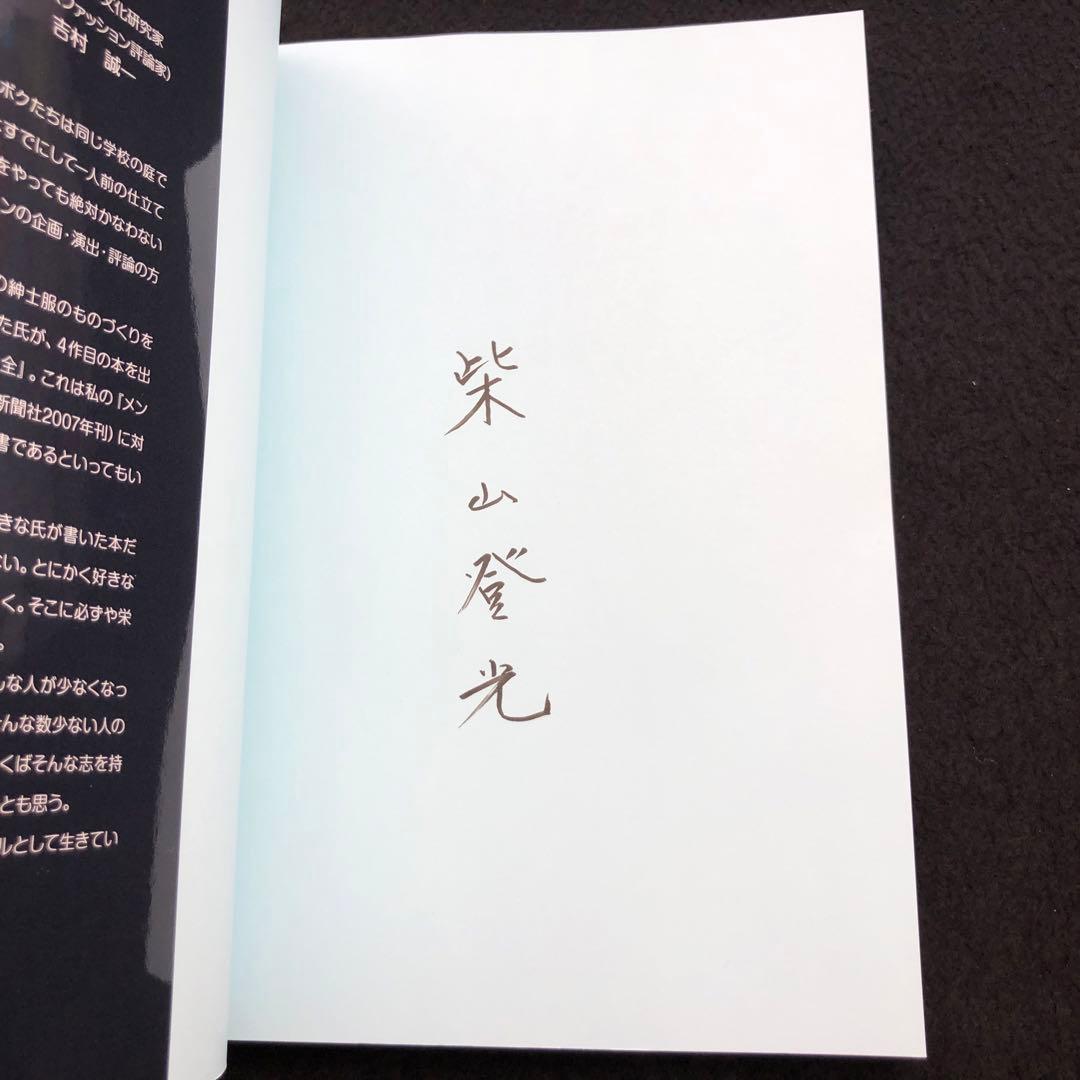 文化研究家
ファッション評論家)
吉村 誠一
ボクたちは同じ学校の庭で
すでにして一人前の仕立て
をやっても絶対かなわない
ンの企画・演出・評論の方
の紳士服のものづくりを
た氏が、4作目の本を出
全』。これは私の『メン
新聞社2007年刊)に対
書であるといってもい
きな氏が書いた本だ
い。とにかく好きな
く。そこに必ずや栄
。
んな人が少なくなっ
そんな数少ない人の
くばそんな志を持
とも思う。
ルとして生きてい
柴山登光